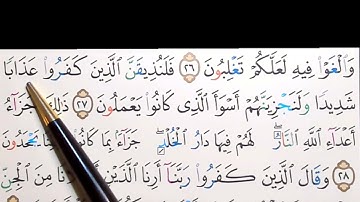 وَٱلْغَوْا۟ فِيهِ لَعَلَّكُمْ تَغْلِبُونَ ٢٦ فَلَنُذِيقَنَّ ٱلَّذِينَ كَفَرُوا۟ عَذَابًا
شَدِيدًا وَلَنَجْزِيَنَّهُمْ أَسْوَأَ ٱلَّذِى كَانُوا۟ يَعْمَلُونَ ٢٧ ذَٰلِكَ جَزَآءُ
أَعْدَآءِ ٱللَّهِ ٱلنَّارُ ۖ لَهُمْ فِيهَا دَارُ ٱلْخُلْدِ ۖ جَزَآءًۢ بِمَا كَانُوا۟ يَجْحَدُونَ
٢٨ وَقَالَ ٱلَّذِينَ كَفَرُوا۟ رَبَّنَآ أَرِنَا ٱلَّذَيْنِ مِنَ ٱلْجِنِّ